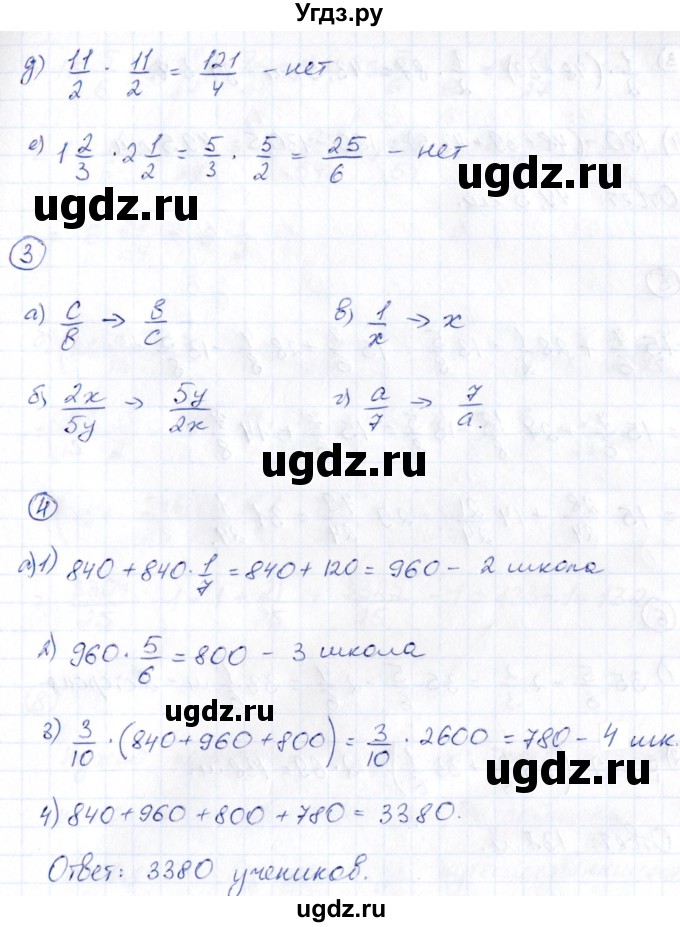 Угдз.ру
д) 11/2 · 11/2 = 121/4 – нет
е) 1 2/3 · 2 1/2 = 5/3 · 5/2 = 25/6 – нет
ugdz.ru
ugdz.ru
3
а) c/в → в/c
в) 1/x → x
б) 2x/5y → 5y/2x
г) a/7 → 7/a.
ugdz.ru
4
а) 1) 840 + 840 · 1/7 = 840 + 120 = 960 – 2 школа
2) 960 · 5/6 = 800 – 3 школа
ugdz.ru
3) 3/10 · (840 + 960 + 800) = 3/10 · 2600 = 780 – 4 шк.
ugdz.ru
4) 840 + 960 + 800 + 780 = 3380.
Ответ: 3380 учеников.
ugdz.ru